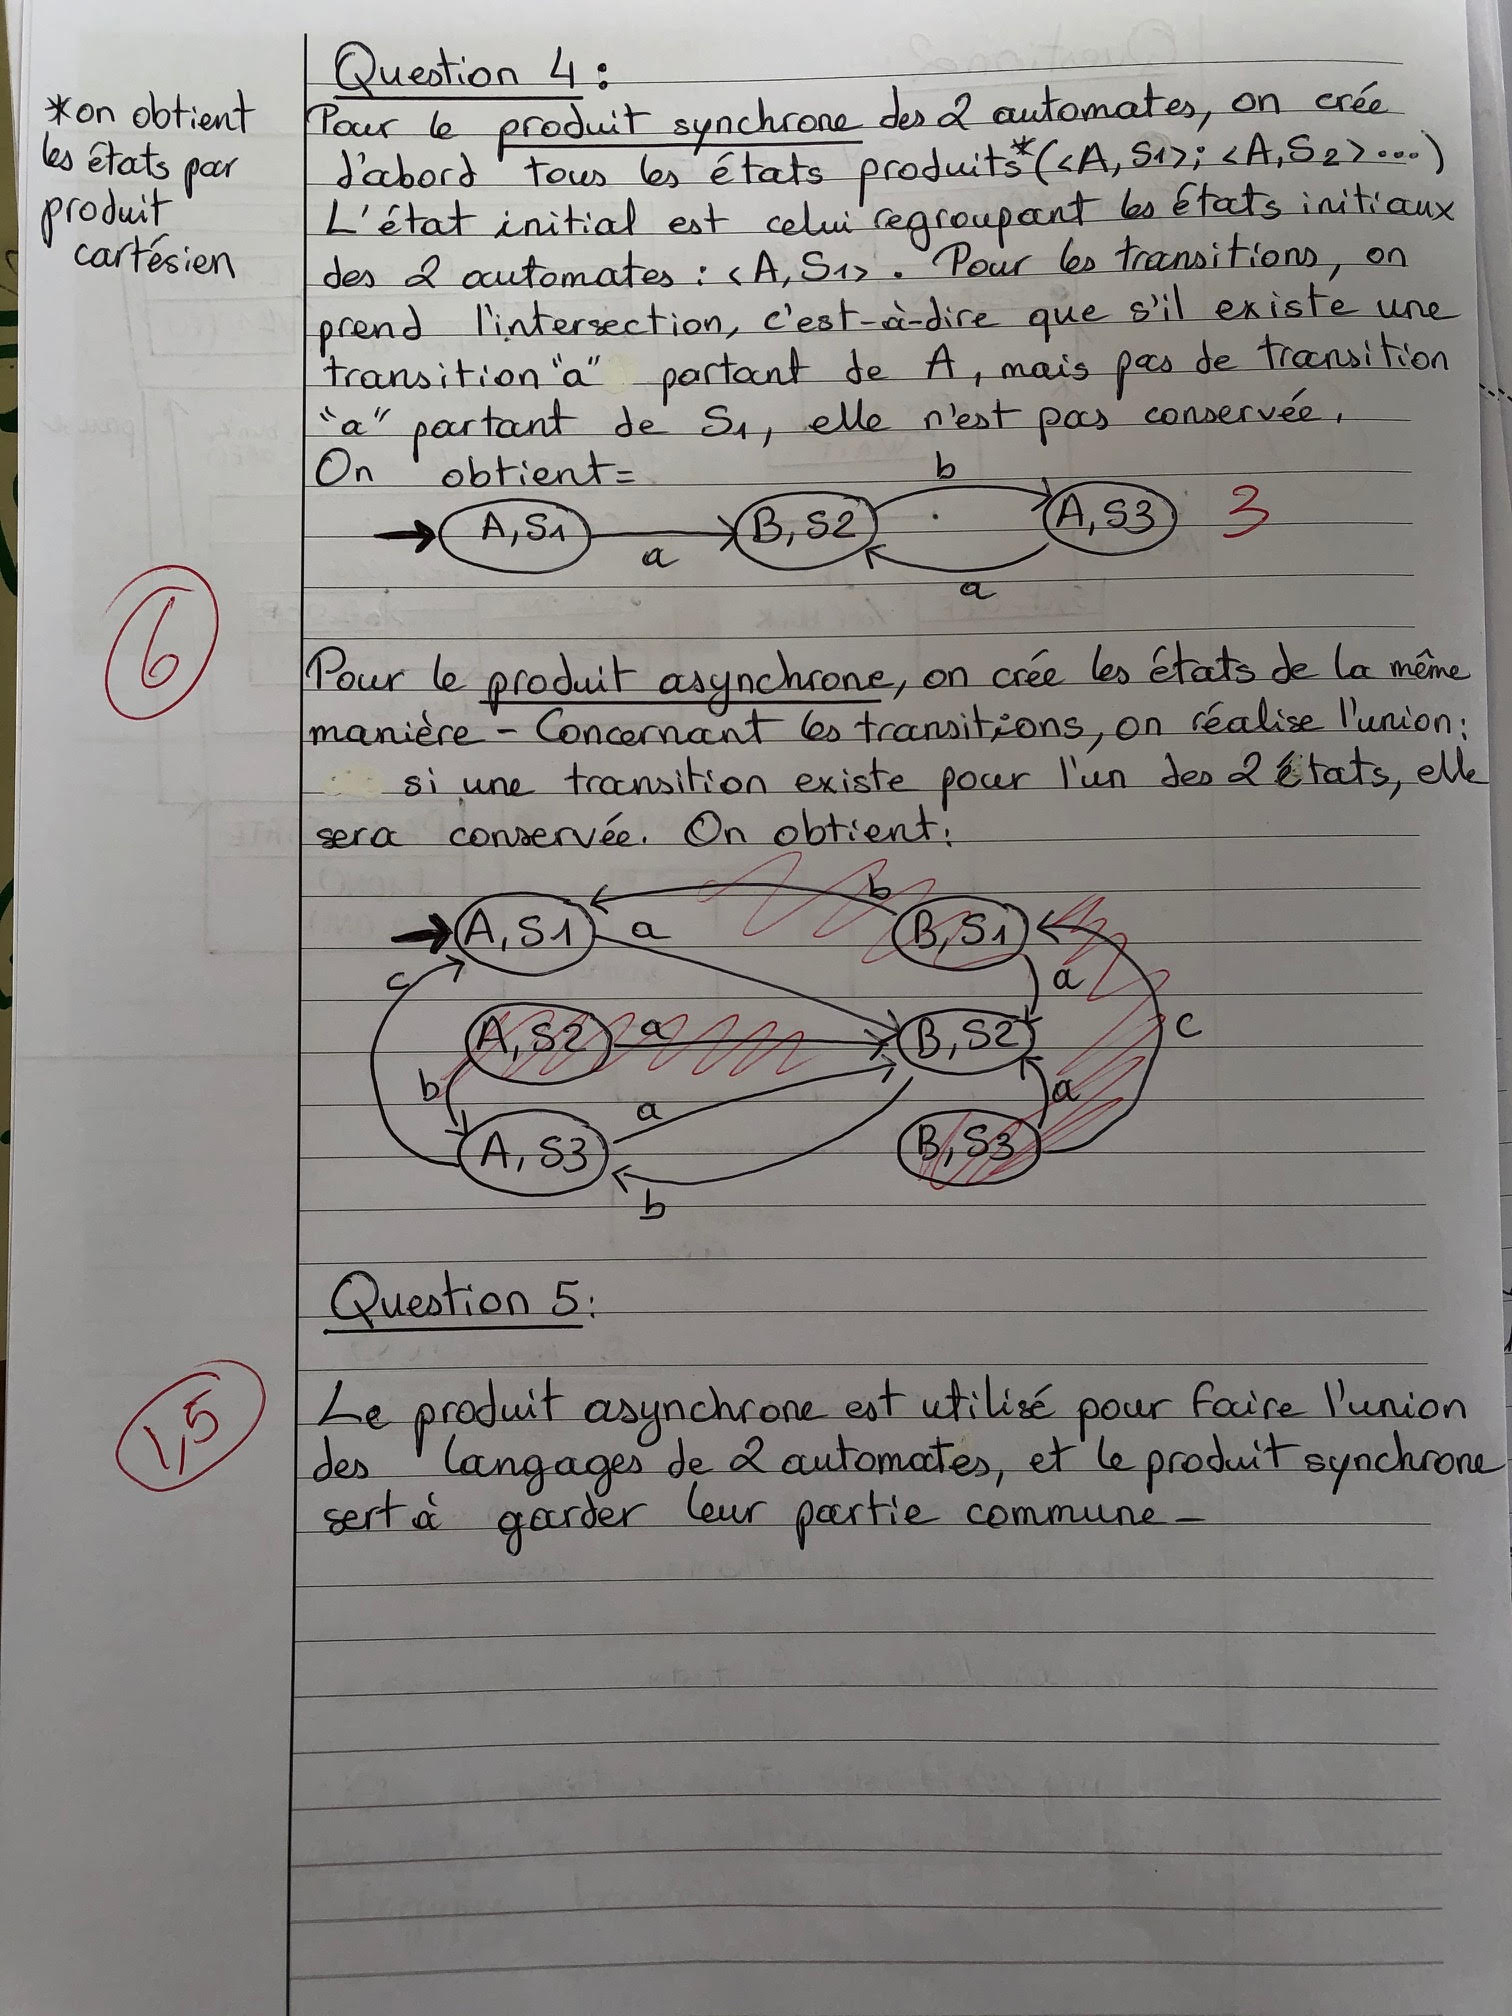 Question 4 :
*on obtient
les états par
produit
cartésien
Pour le produit synchrone des 2 automates, on crée
d'abord tous les états produits* (<A, S1>; <A, S2> ...)
L'état initial est celui regroupant les états initiaux
des 2 automates : <A, S1>. Pour les transitions, on
prend l'intersection, c'est-à-dire que s'il existe une
transition "a" partant de A, mais pas de transition
"a" partant de S1, elle n'est pas conservée.
On obtient =
b
A, S1
a
B, S2
A, S3
3
a
6
Pour le produit asynchrone, on crée les états de la même
manière - Concernant les transitions, on réalise l'union :
si une transition existe pour l'un des 2 états, elle
sera conservée. On obtient :
b
A, S1
a
B, S1
c
a
A, S2
a
B, S2
c
b
a
a
A, S3
B, S3
b
Question 5 :
1,5
Le produit asynchrone est utilisé pour faire l'union
des langages de 2 automates, et le produit synchrone
sert à garder leur partie commune -